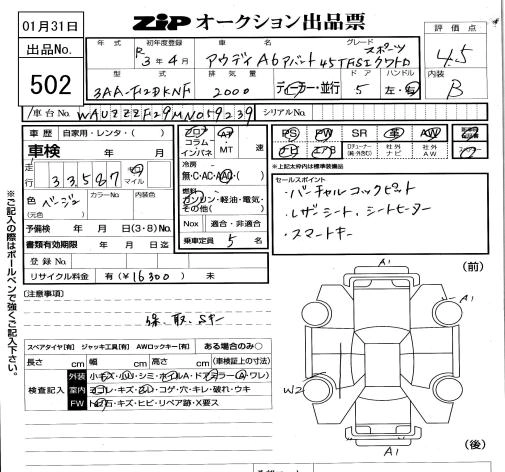 01月31日
出品No.
502
ZIP オークション出品票
年式 初年度登録 車名 グレード
R 3年4月 アウディA6アバント45TFSIクワトロ スポーツ
評価点
4.5
内装
B
型式 排気量 ドア ハンドル
3AA-F2DKNF 2000 ディーラー・並行 5 左・右
車台No. WAUZZZF29MN059239 シリアルNo.
車歴 自家用・レンタ・( )
車検 年 月
走行 33,587 km マイル
色 ベージュ カラーNo 内装色
(元色)
予備検 年 月 日(3・8)No.
書類有効期限 年 月 日迄
登録No.
リサイクル料金 有(¥16300) 未
フロア コラム インパネ AT MT 速
冷房
無・C・AC・AAC( )
燃料
ガソリン・軽油・電気・その他( )
Nox 適合・非適合
乗車定員 5 名
PS PW SR 革 AW
ナビ エアB 社外ナビ 社外AW
※上記太枠内は標準装備品
セールスポイント
・バーチャルコックピット
・レザーシート、シートヒーター
・スマートキー
[注意事項]
保、取、Sキー
スペアタイヤ[有] ジャッキ工具[有] AWロックキー[有] ある場合のみ○
長さ cm 幅 cm 高さ cm (車検証上の寸法)
検査記入
外装 小キズ・小凹・シミ・ホイルA・ドアミラー(A・ワレ)
室内 ヨゴレ・キズ・スレ・コゲ・穴・キレ・破れ・ウキ
FW トビ石・キズ・ヒビ・リペア跡・X要ス
(前)
A1
A1
W2
A1
(後)
※ご記入の際はボールペンで強くご記入下さい。